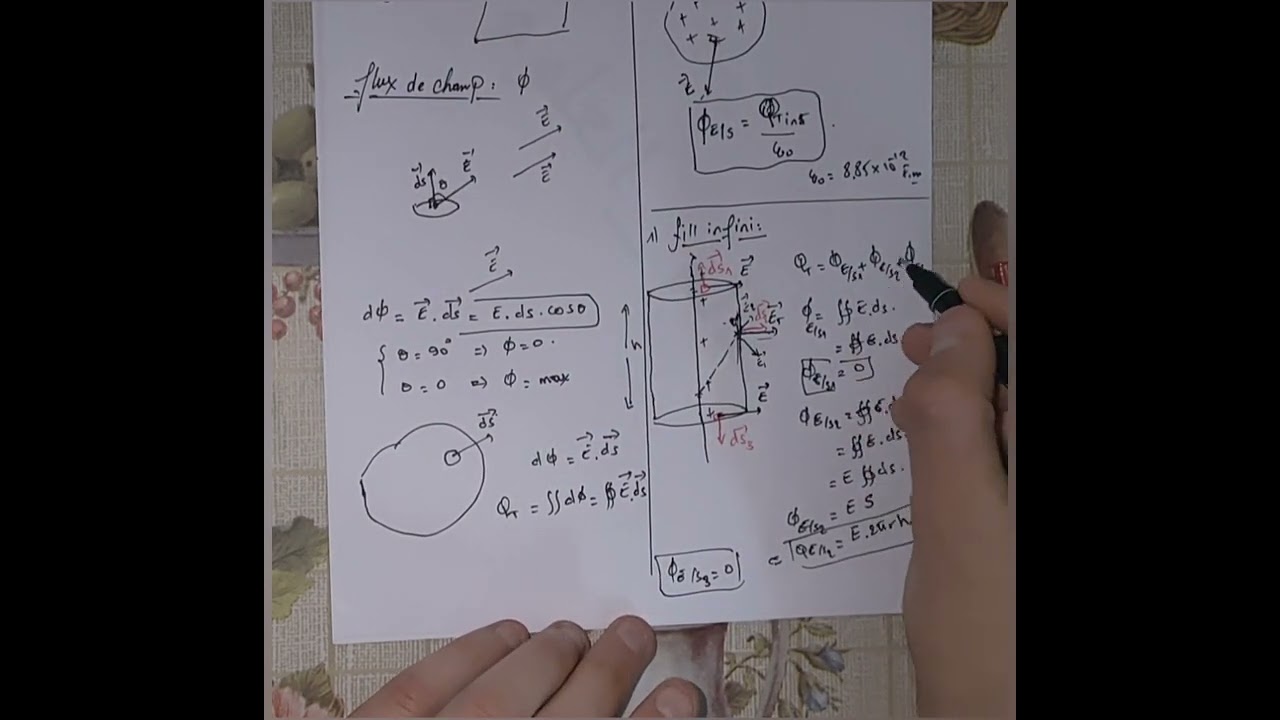 flux de champ : ϕ
E⃗
E⃗
ds⃗ θ E⃗
E⃗
dϕ = E⃗ . ds⃗ = E. ds. cosθ
θ = 90° => ϕ = 0.
θ = 0 => ϕ = max
ds⃗
dϕ = E⃗ . ds⃗
Q_T = ∬ dϕ = ∯ E⃗ . ds⃗
+ + + + +
ϕ_E/s = Q_Tint / ε₀
ε₀ = 8,85 × 10⁻¹² F.m
1) fill infini :
ds⃗₁ E⃗
ds⃗ E⃗_T
E⃗₁
h
E⃗
ds⃗₃
Q_T = ϕ_E/s1 + ϕ_E/s2 + ϕ
ϕ_E/s1 = ∬ E. ds.
= ∯ E. ds
ϕ_E/s1 = 0
ϕ_E/s2 = ∯ E. d
= ∬ E. ds
= E ∬ ds.
ϕ_E/s2 = E S
= ϕ_E/s2 = E. 2πrh
ϕ_E/s3 = 0